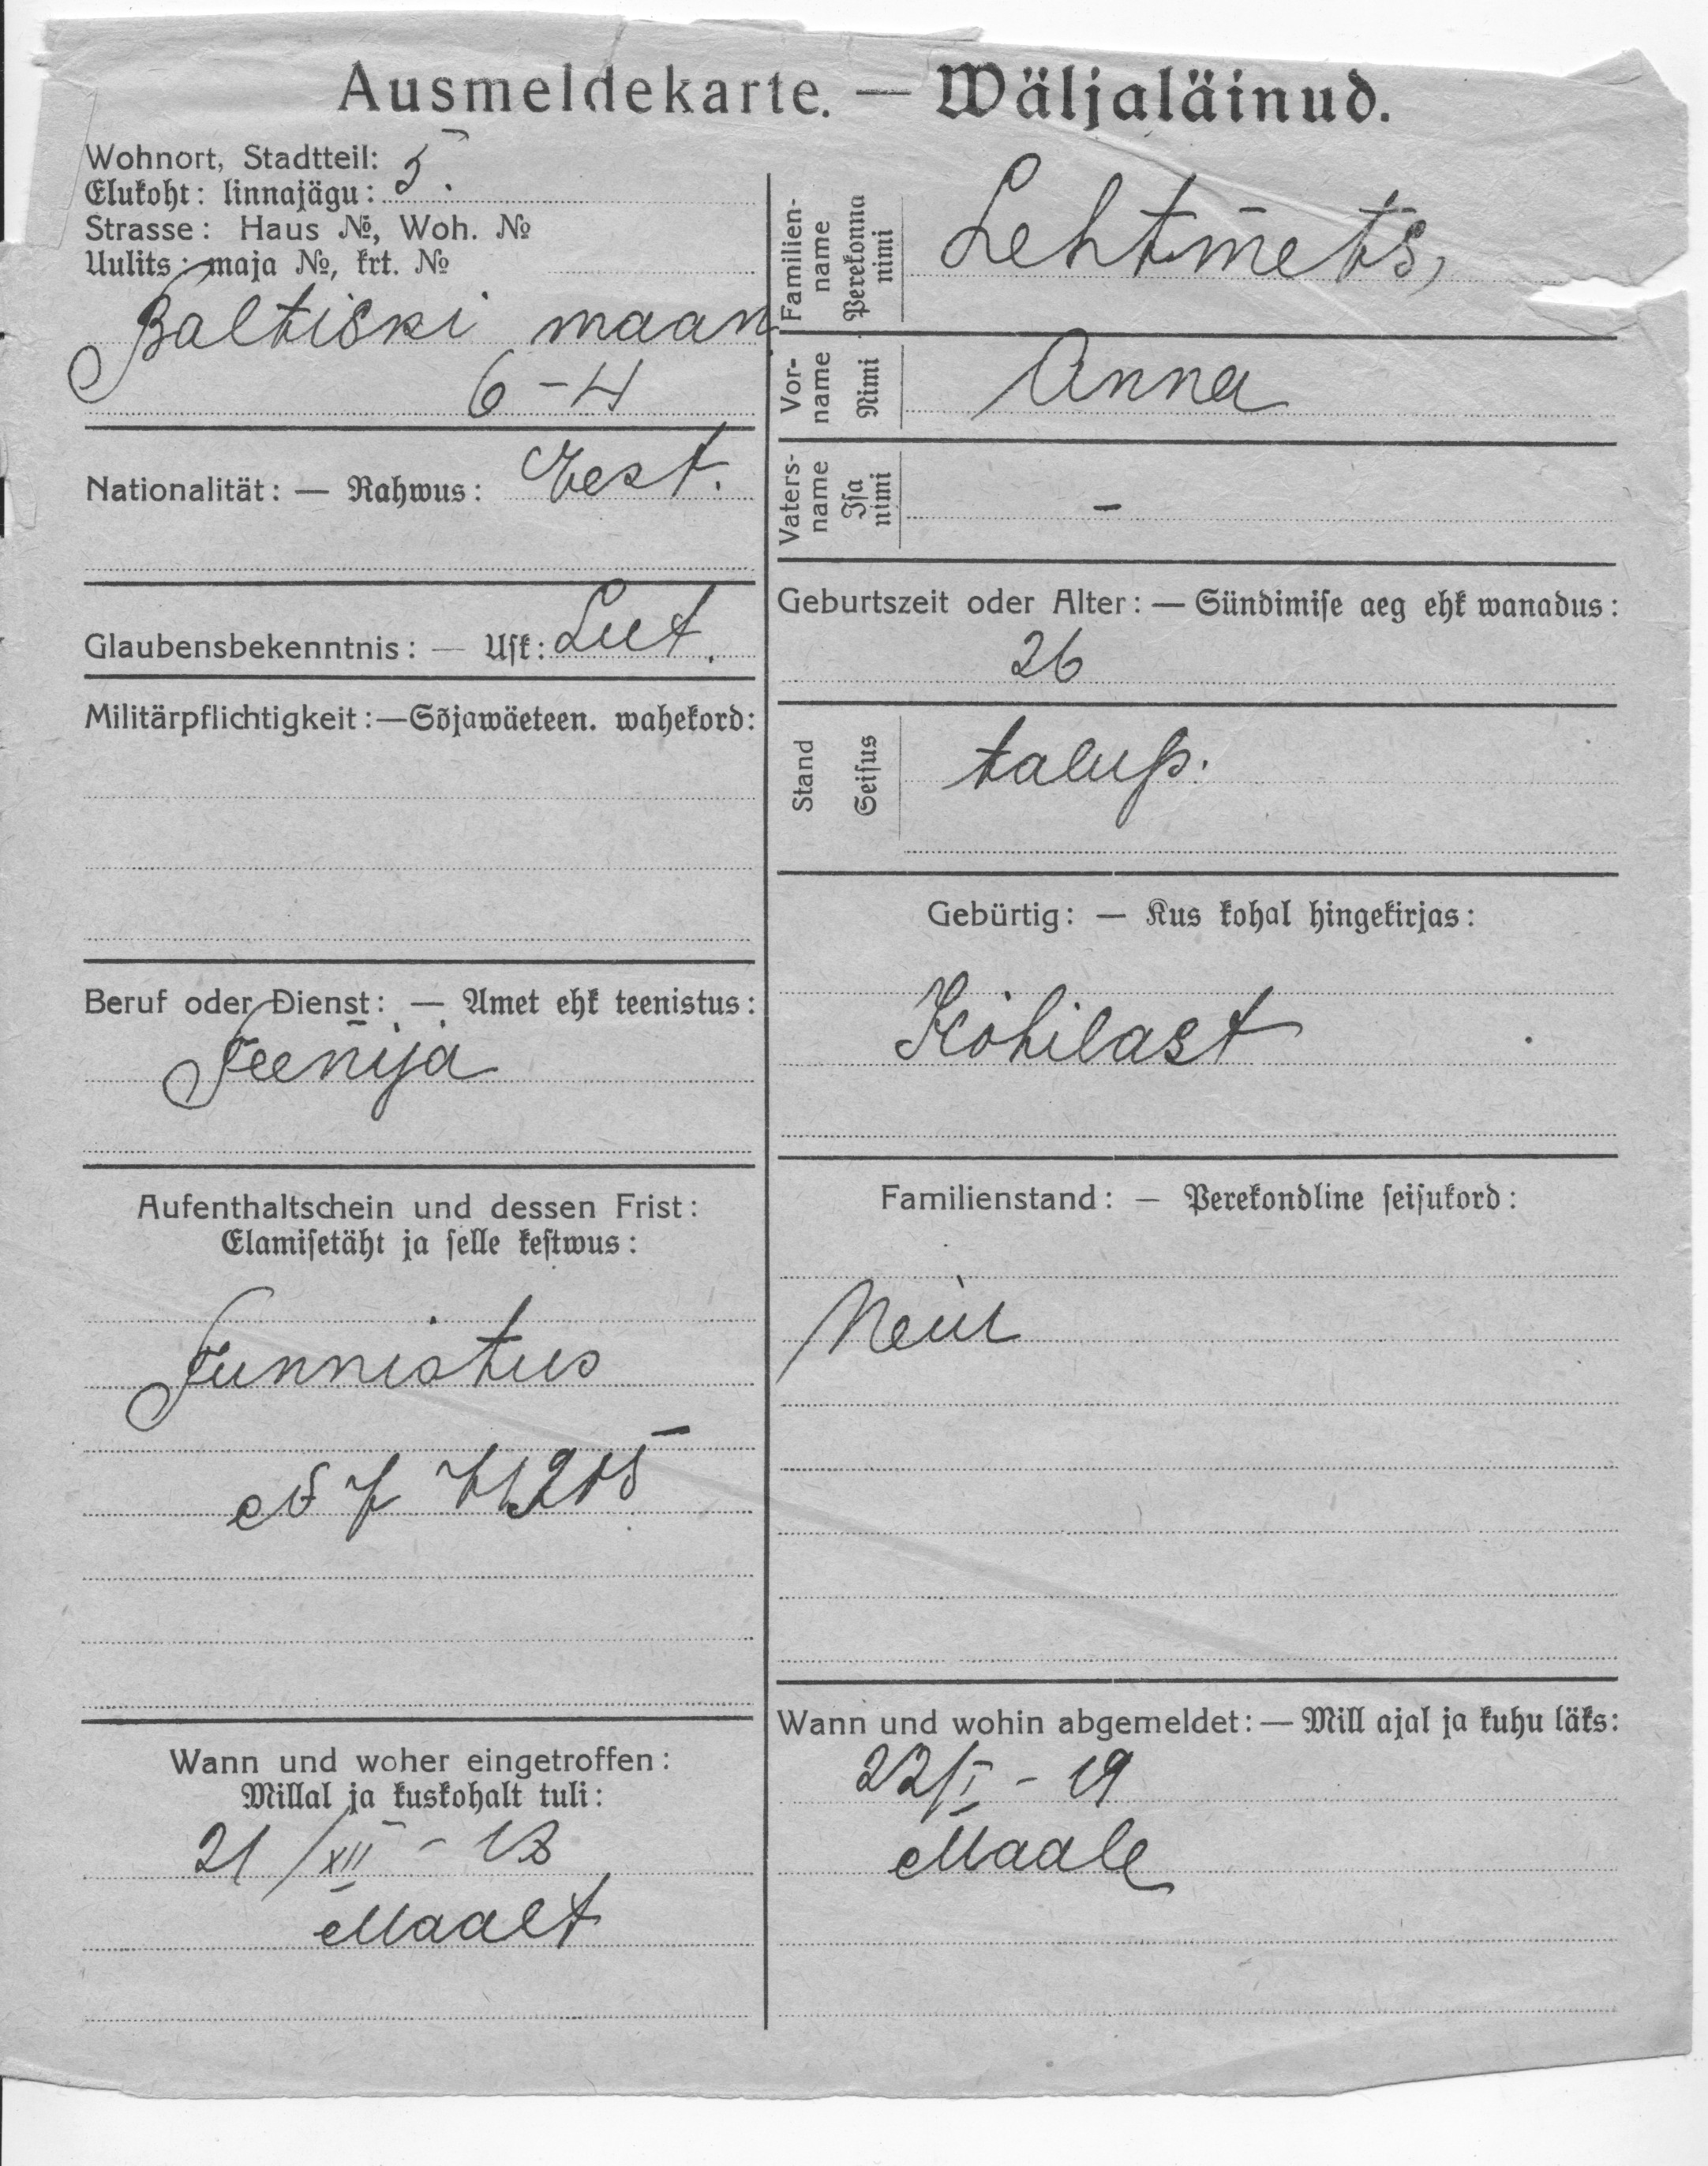 Ausmeldekarte. — Wäljaläinud.
Wohnort, Stadtteil:
Elukoht: linnajägu: 5.
Strasse: Haus №, Woh. №
Uulits: maja №, krt. №
Baltiski maan
6 – 4
Nationalität: — Rahwus: Eest.
Glaubensbekenntnis: — Usk: Lut.
Militärpflichtigkeit: — Sõjawäeteen. wahekord:
Beruf oder Dienst: — Amet ehk teenistus:
Teenija
Aufenthaltschein und dessen Frist:
Elamisetäht ja selle kestwus:
Tunnistus
Wann und woher eingetroffen:
Millal ja kuskohalt tuli:
21/XII – 18
Maalt
Familien-
name
Perekonna
nimi
Lehtmets,
Vor-
name
Nimi
Anna
Vaters-
name
Isa
nimi
–
Geburtszeit oder Alter: — Sündimise aeg ehk wanadus:
26
Stand
Seisus
talup.
Gebürtig: — Kus kohal hingekirjas:
Kohilast
Familienstand: — Perekondline seisukord:
Neiu
Wann und wohin abgemeldet: — Mill ajal ja kuhu läks:
22/I – 19
Maale